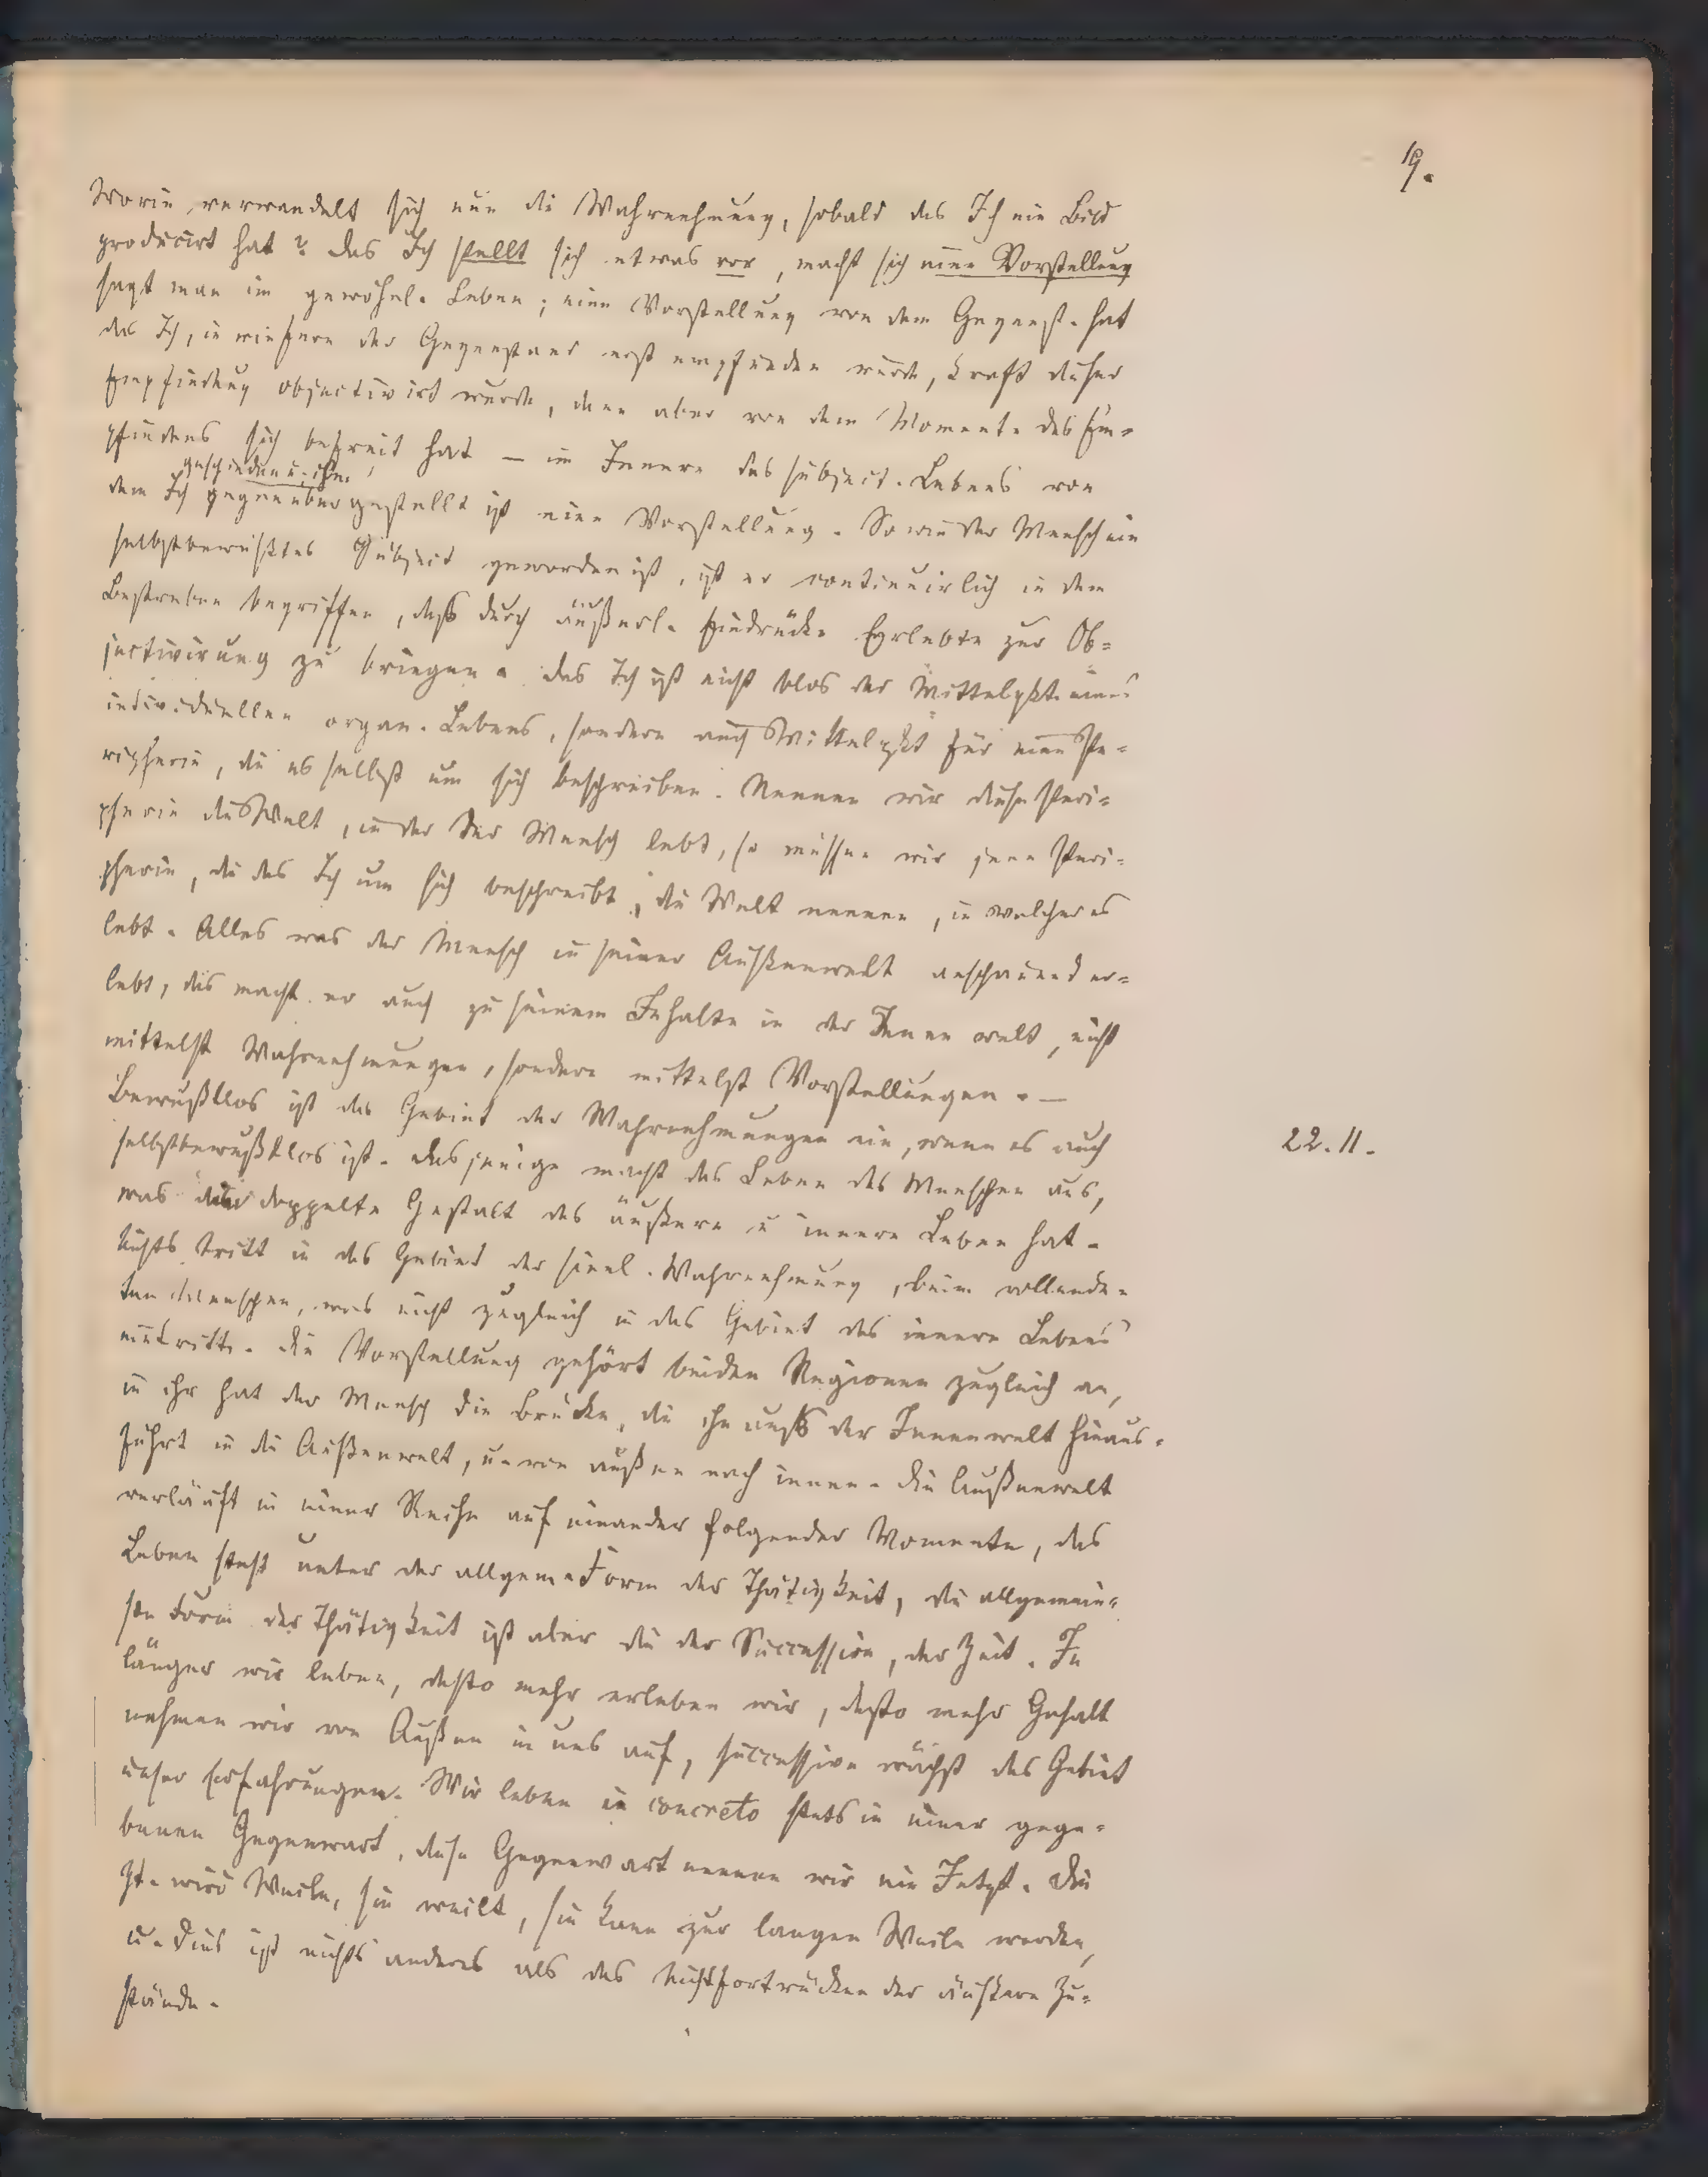 19.
Worin verwandelt sich nun die Wahrnehmung, sobald das Ich ein Bild
producirt hat? Das Ich stellt sich etwas vor, macht sich eine Vorstellung
sagt man im gewöhnl. Leben; eine Vorstellung von dem Gegenst. hat
das Ich, in wiefern der Gegenstand erst empfunden wurde, kraft dieser
Empfindung objectivirt wurde, dann aber von dem Momente des Em-
pfindens sich befreit hat – im Innern des subject. Lebens von
geschieden u. ihm
dem Ich gegenübergestellt ist eine Vorstellung. So wie der Mensch ein
selbstbewußtes Subject geworden ist, ist er continuirlich in dem
Bestreben begriffen, dass durch äußerl. Eindrücke Erlebte zur Ob=
jectivirung zu bringen. Das Ich ist nicht blos der Mittelpkt. eines
individuellen organ. Lebens, sondern auch Mittelpkt für eine Pe=
ripherie, die es selbst um sich beschreiben. Nennen wir diese Peri=
pherie die Welt, in der der Mensch lebt, so müssen wir jene Peri=
pherie, die das Ich um sich beschreibt, die Welt nennen, in welcher es
lebt. Alles was der Mensch in seiner Außenwelt anschauend er=
lebt, dis macht er auch zu seinem Inhalte in der Innenwelt, nicht
mittelst Wahrnehmungen, sondern mittelst Vorstellungen. –
Bewußtlos ist das Gebiet der Wahrnehmungen nie, wenn es auch
22.11.
selbstbewußtlos ist. Dasjenige macht das Leben des Menschen aus,
was die doppelte Gestalt des äußern u innern Leben hat.
Nichts tritt in das Gebiet der sinnl. Wahrnehmung, beim vollende=
ten Menschen, was nicht zugleich in das Gebiet des innern Lebens
eintritt. Die Vorstellung gehört beiden Regionen zugleich an,
in ihr hat der Mensch die Brücke, die ihn auß der Innenwelt hinaus=
führt in die Außenwelt, u. von außen nach innen. Die Außenwelt
verläuft in einer Reihe auf einander folgender Momente, das
Leben steht unter der allgem. Form der Thätigkeit, die allgemein=
ste Form der Thätigkeit ist aber die der Succession, der Zeit. Je
länger wir leben, desto mehr erleben wir, desto mehr Gehalt
nehmen wir von Außen in uns auf, successive wächst das Gebiet
unser Erfahrungen. Wir leben in concreto stets in einer gege=
benen Gegenwart, diese Gegenwart nennen wir ein Jetzt. Die
Zt. wird Weile, sie weilt, sie kann zur langen Weile werden,
u. dies ist nichts anderes als das Nichtfortrücken der äußern Zu=
stände.